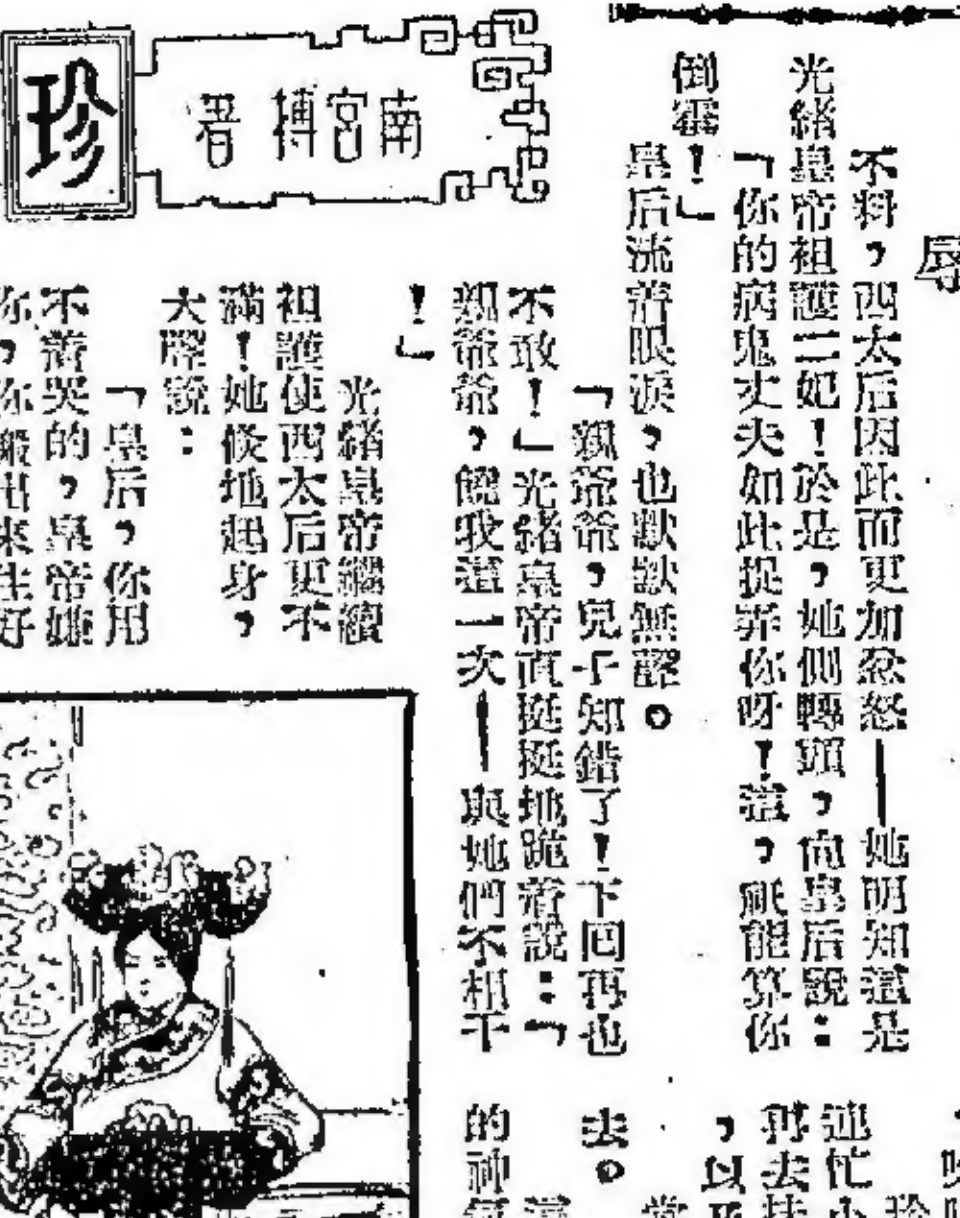 辱
不料，西太后因此而更加忿怒——她明知這是
光緒皇帝袒護二妃！於是，她側轉頭，向皇后說：
「你的病鬼丈夫如此捉弄你呀！這，祇能算你
倒霉！」
皇后流着眼淚，也默默無聲。
「親爺爺，兒子知錯了！下回再也
不敢！」光緒皇帝直挺挺地跪着說：「
親爺爺，饒我這一次——與她們不相干
！」
光緒皇帝繼續
袒護使西太后更不
滿！她倏地起身，
大聲說：
「皇后，你用
不着哭的，皇帝
你，你搬出來住好
南宮搏著
珍
連忙
再去扶
，以
去。
的神